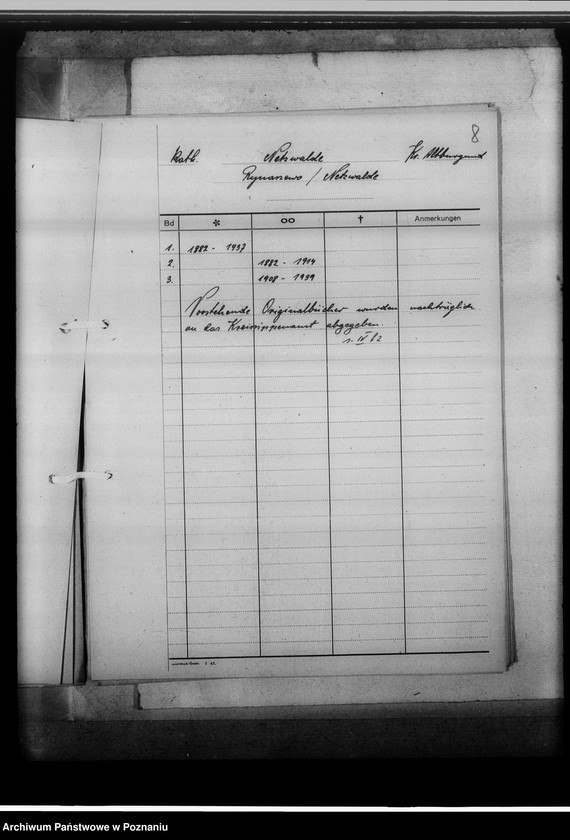 8
Kath. Netzwalde Kr. Altburgund
Rynarzewo / Netzwalde
Bd * oo † Anmerkungen
1. 1882 - 1937
2. 1882 - 1914
3. 1908 - 1939
Vorstehende Originalbücher wurden nachträglich
an das Kreissippenamt abgegeben.
s. IV
Archiwum Państwowe w Poznaniu